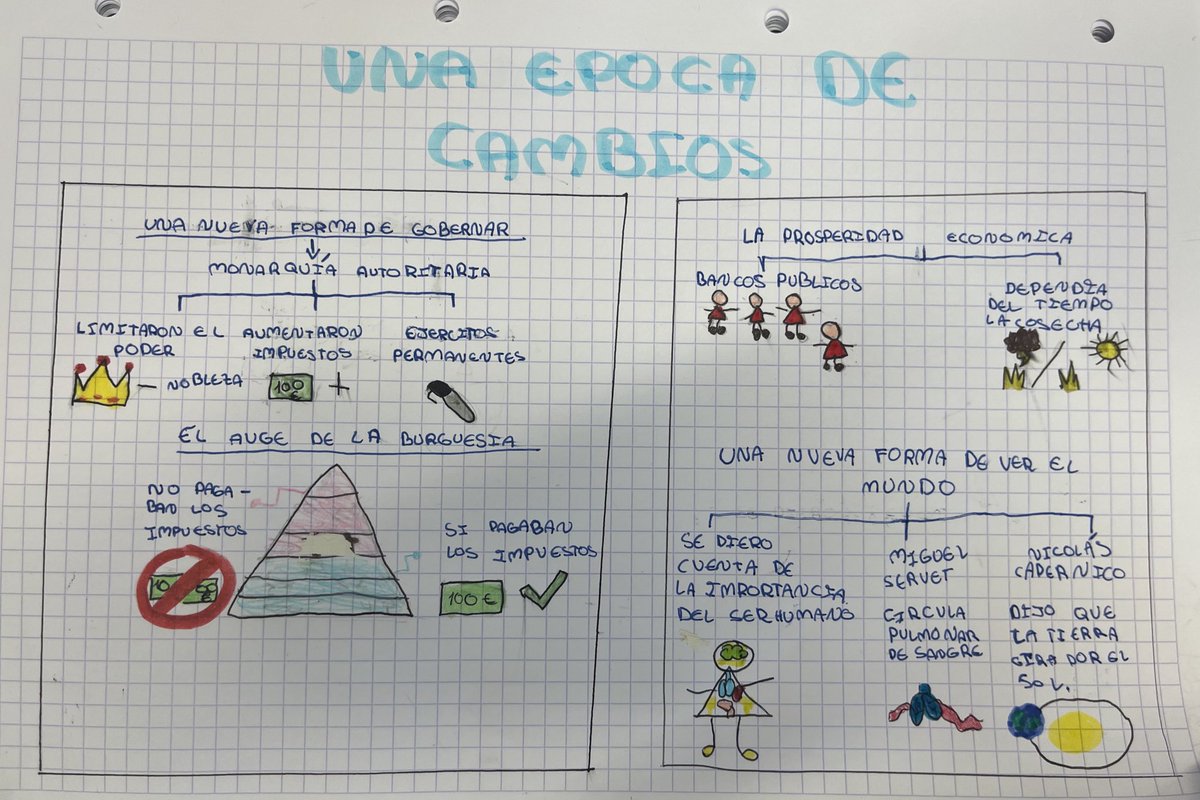 UNA EPOCA DE
CAMBIOS
UNA NUEVA FORMA DE GOBERNAR
MONARQUÍA AUTORITARIA
LIMITARON EL
PODER
NOBLEZA
AUMENTARON
IMPUESTOS
100
€
+
EJERCITOS
PERMANENTES
EL AUGE DE LA BURGUESIA
NO PAGA-
BAN LOS
IMPUESTOS
SI PAGABAN
LOS IMPUESTOS
100 €
LA PROSPERIDAD ECONOMICA
BANCOS PUBLICOS
DEPENDÍA
DEL TIEMPO
LA COSECHA
UNA NUEVA FORMA DE VER EL
MUNDO
SE DIERO
CUENTA DE
LA IMPORTANCIA
DEL SER HUMANO
MIGUEL
SERVET
CIRCULA
PULMONAR
DE SANGRE
NICOLÁS
CAPERNICO
DIJO QUE
LA TIERRA
GIRA POR EL
SOL.